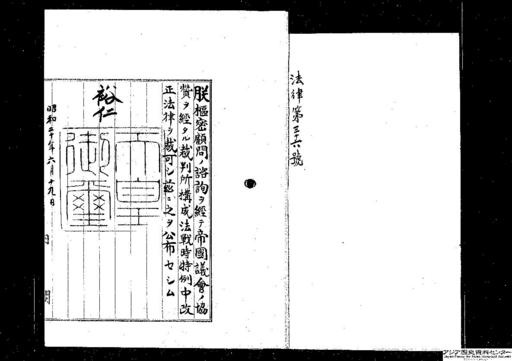 法律第三十六號
朕樞密顧問ノ諮詢ヲ經テ帝國議會ノ協
贊ヲ經タル裁判所構成法戰時特例中改
正法律ヲ裁可シ茲ニ之ヲ公布セシム
裕仁
天皇
御璽
昭和二十年六月十九日
内閣
アジア歴史資料センター